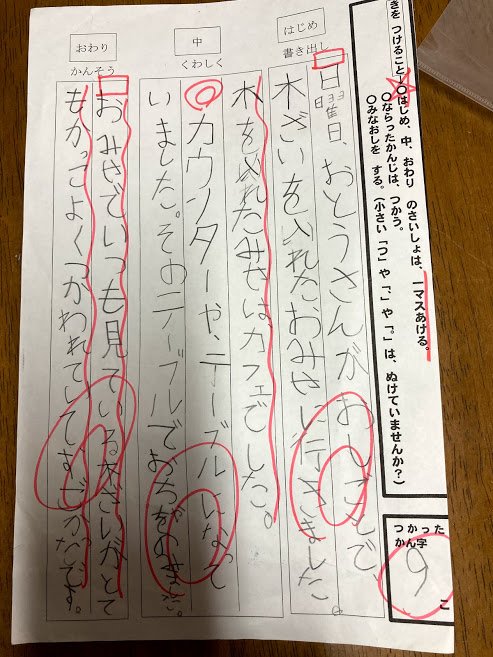 きを つけること！
○はじめ、中、おわり のさいしょは、一マスあける。
○ならったかんじは、つかう。
○みなおしを する。（小さい「っ」や「、」や「。」は、ぬけていませんか？）
つかった
かん字
9
こ
はじめ
書き出し
日曜日、おとうさんが おしごとで
木ざいを入れたおみせに行きました。
木を入れたみせは、カフェでした。
中
くわしく
カウンターや、テーブルになって
いました。そのテーブルで
おわり
かんそう
おみせでいつも見ている木ざいがとて
もかっこよくつかわれていて